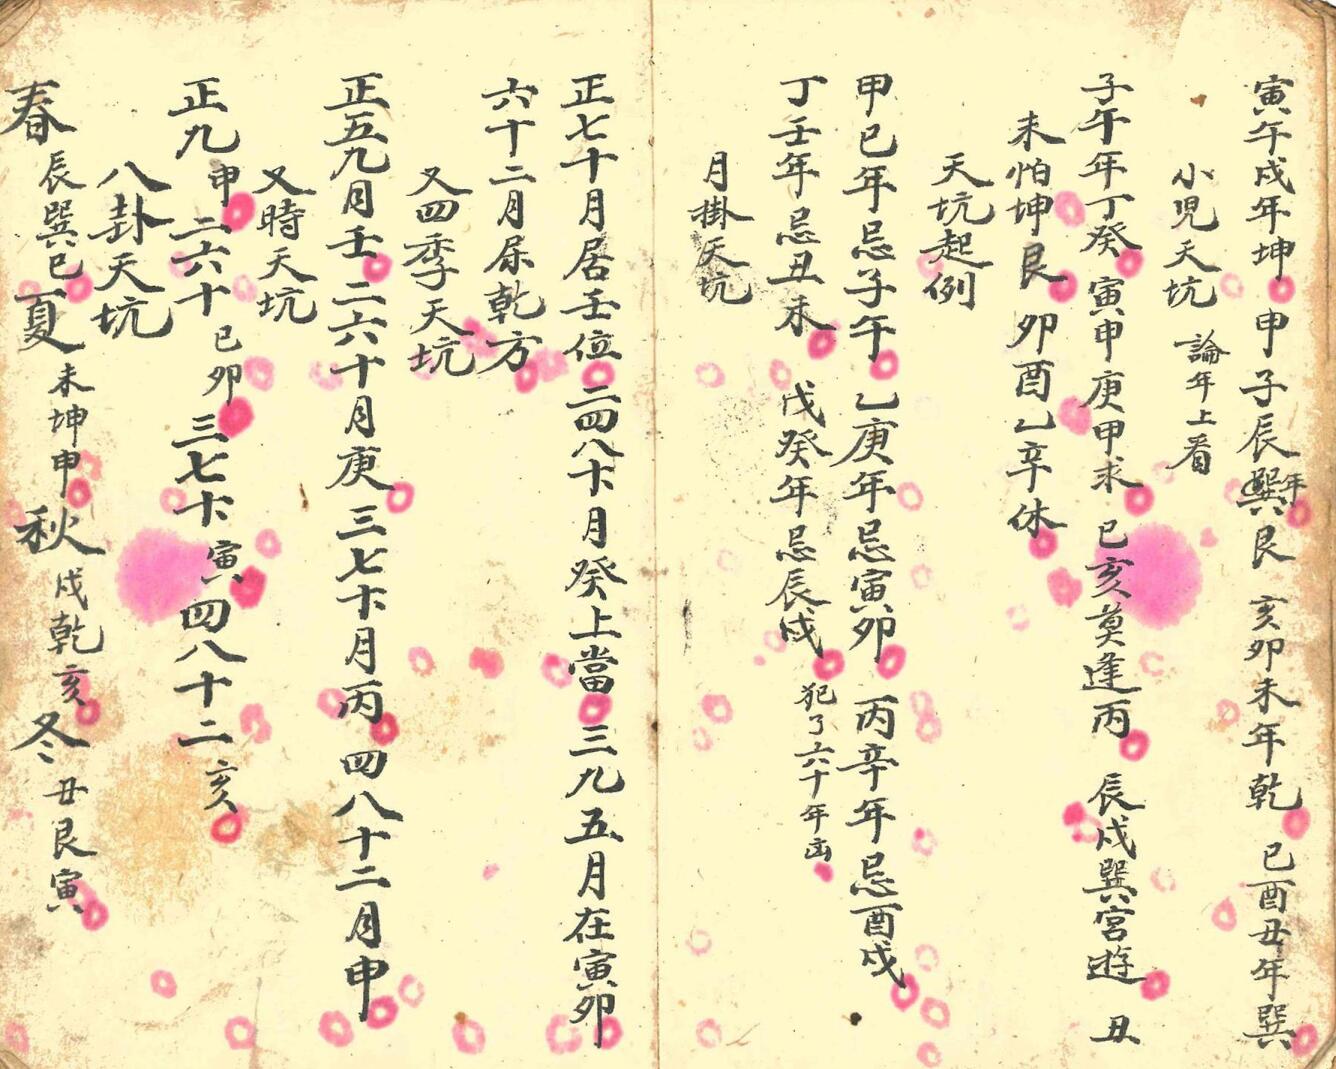 寅午戌年坤 申子辰年巽艮 亥卯未年乾 巳酉丑年巽
小児天坑 論年上看
子午年丁癸 寅申庚甲求 巳亥莫逢丙 辰戌巽宮遊 丑
未怕坤艮 卯酉乙辛休
天坑起例
甲己年忌子午 乙庚年忌寅卯 丙辛年忌酉戌
丁壬年忌丑未 戊癸年忌辰戌 犯了六十年凶
月掛天坑
正七十月居壬位 二四八十月癸上當 三九五月在寅卯
六十二月 乾方
又四季天坑
正五九月壬 二六十月庚 三七十月丙 四八十二月申
又時天坑
正九申 二六十巳卯 三七十寅 四八十二亥
八卦天坑
春辰巽巳 夏未坤申 秋戌乾亥 冬丑艮寅